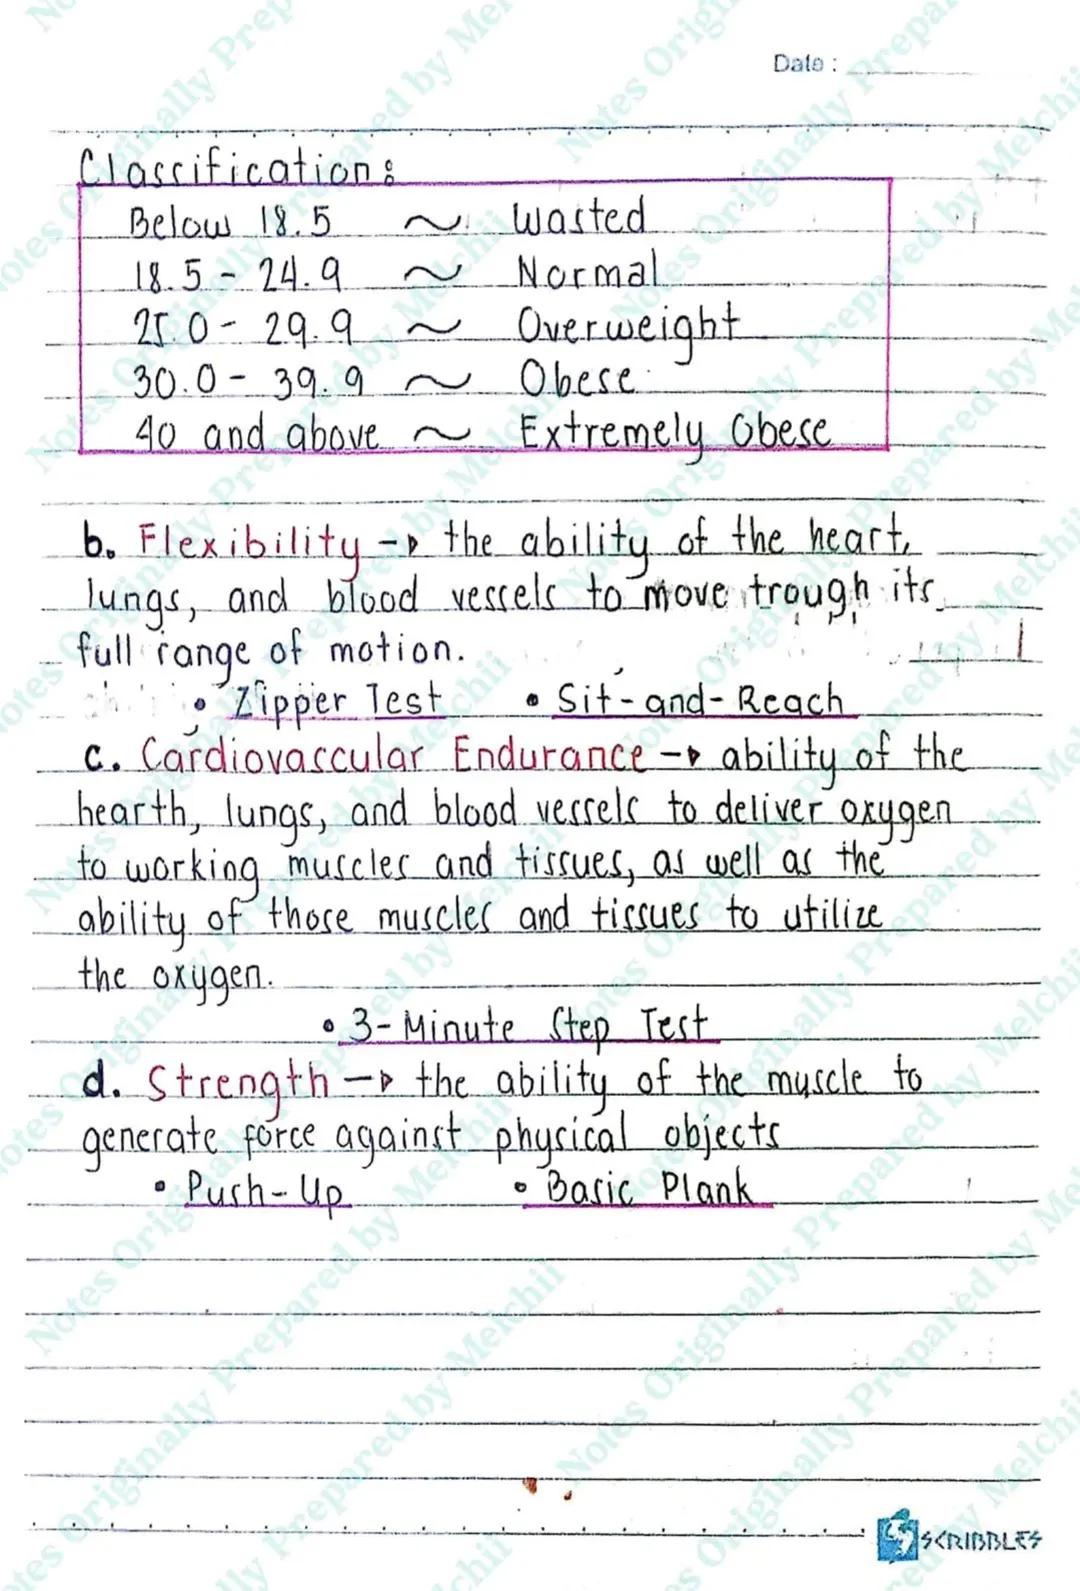 Date :
Classification :
Below 18.5 ~ Wasted
18.5 - 24.9 ~ Normal
25.0 - 29.9 ~ Overweight
30.0 - 39.9 ~ Obese
40 and above ~ Extremely Obese
b. Flexibility → the ability of the heart,
lungs, and blood vessels to move trough its
full range of motion.
• Zipper Test • Sit-and-Reach
c. Cardiovascular Endurance → ability of the
hearth, lungs, and blood vessels to deliver oxygen
to working muscles and tissues, as well as the
ability of those muscles and tissues to utilize
the oxygen.
• 3-Minute Step Test
d. Strength → the ability of the muscle to
generate force against physical objects
• Push-Up • Basic Plank
SCRIBBLES
Notes Originally Prepared by Melchii